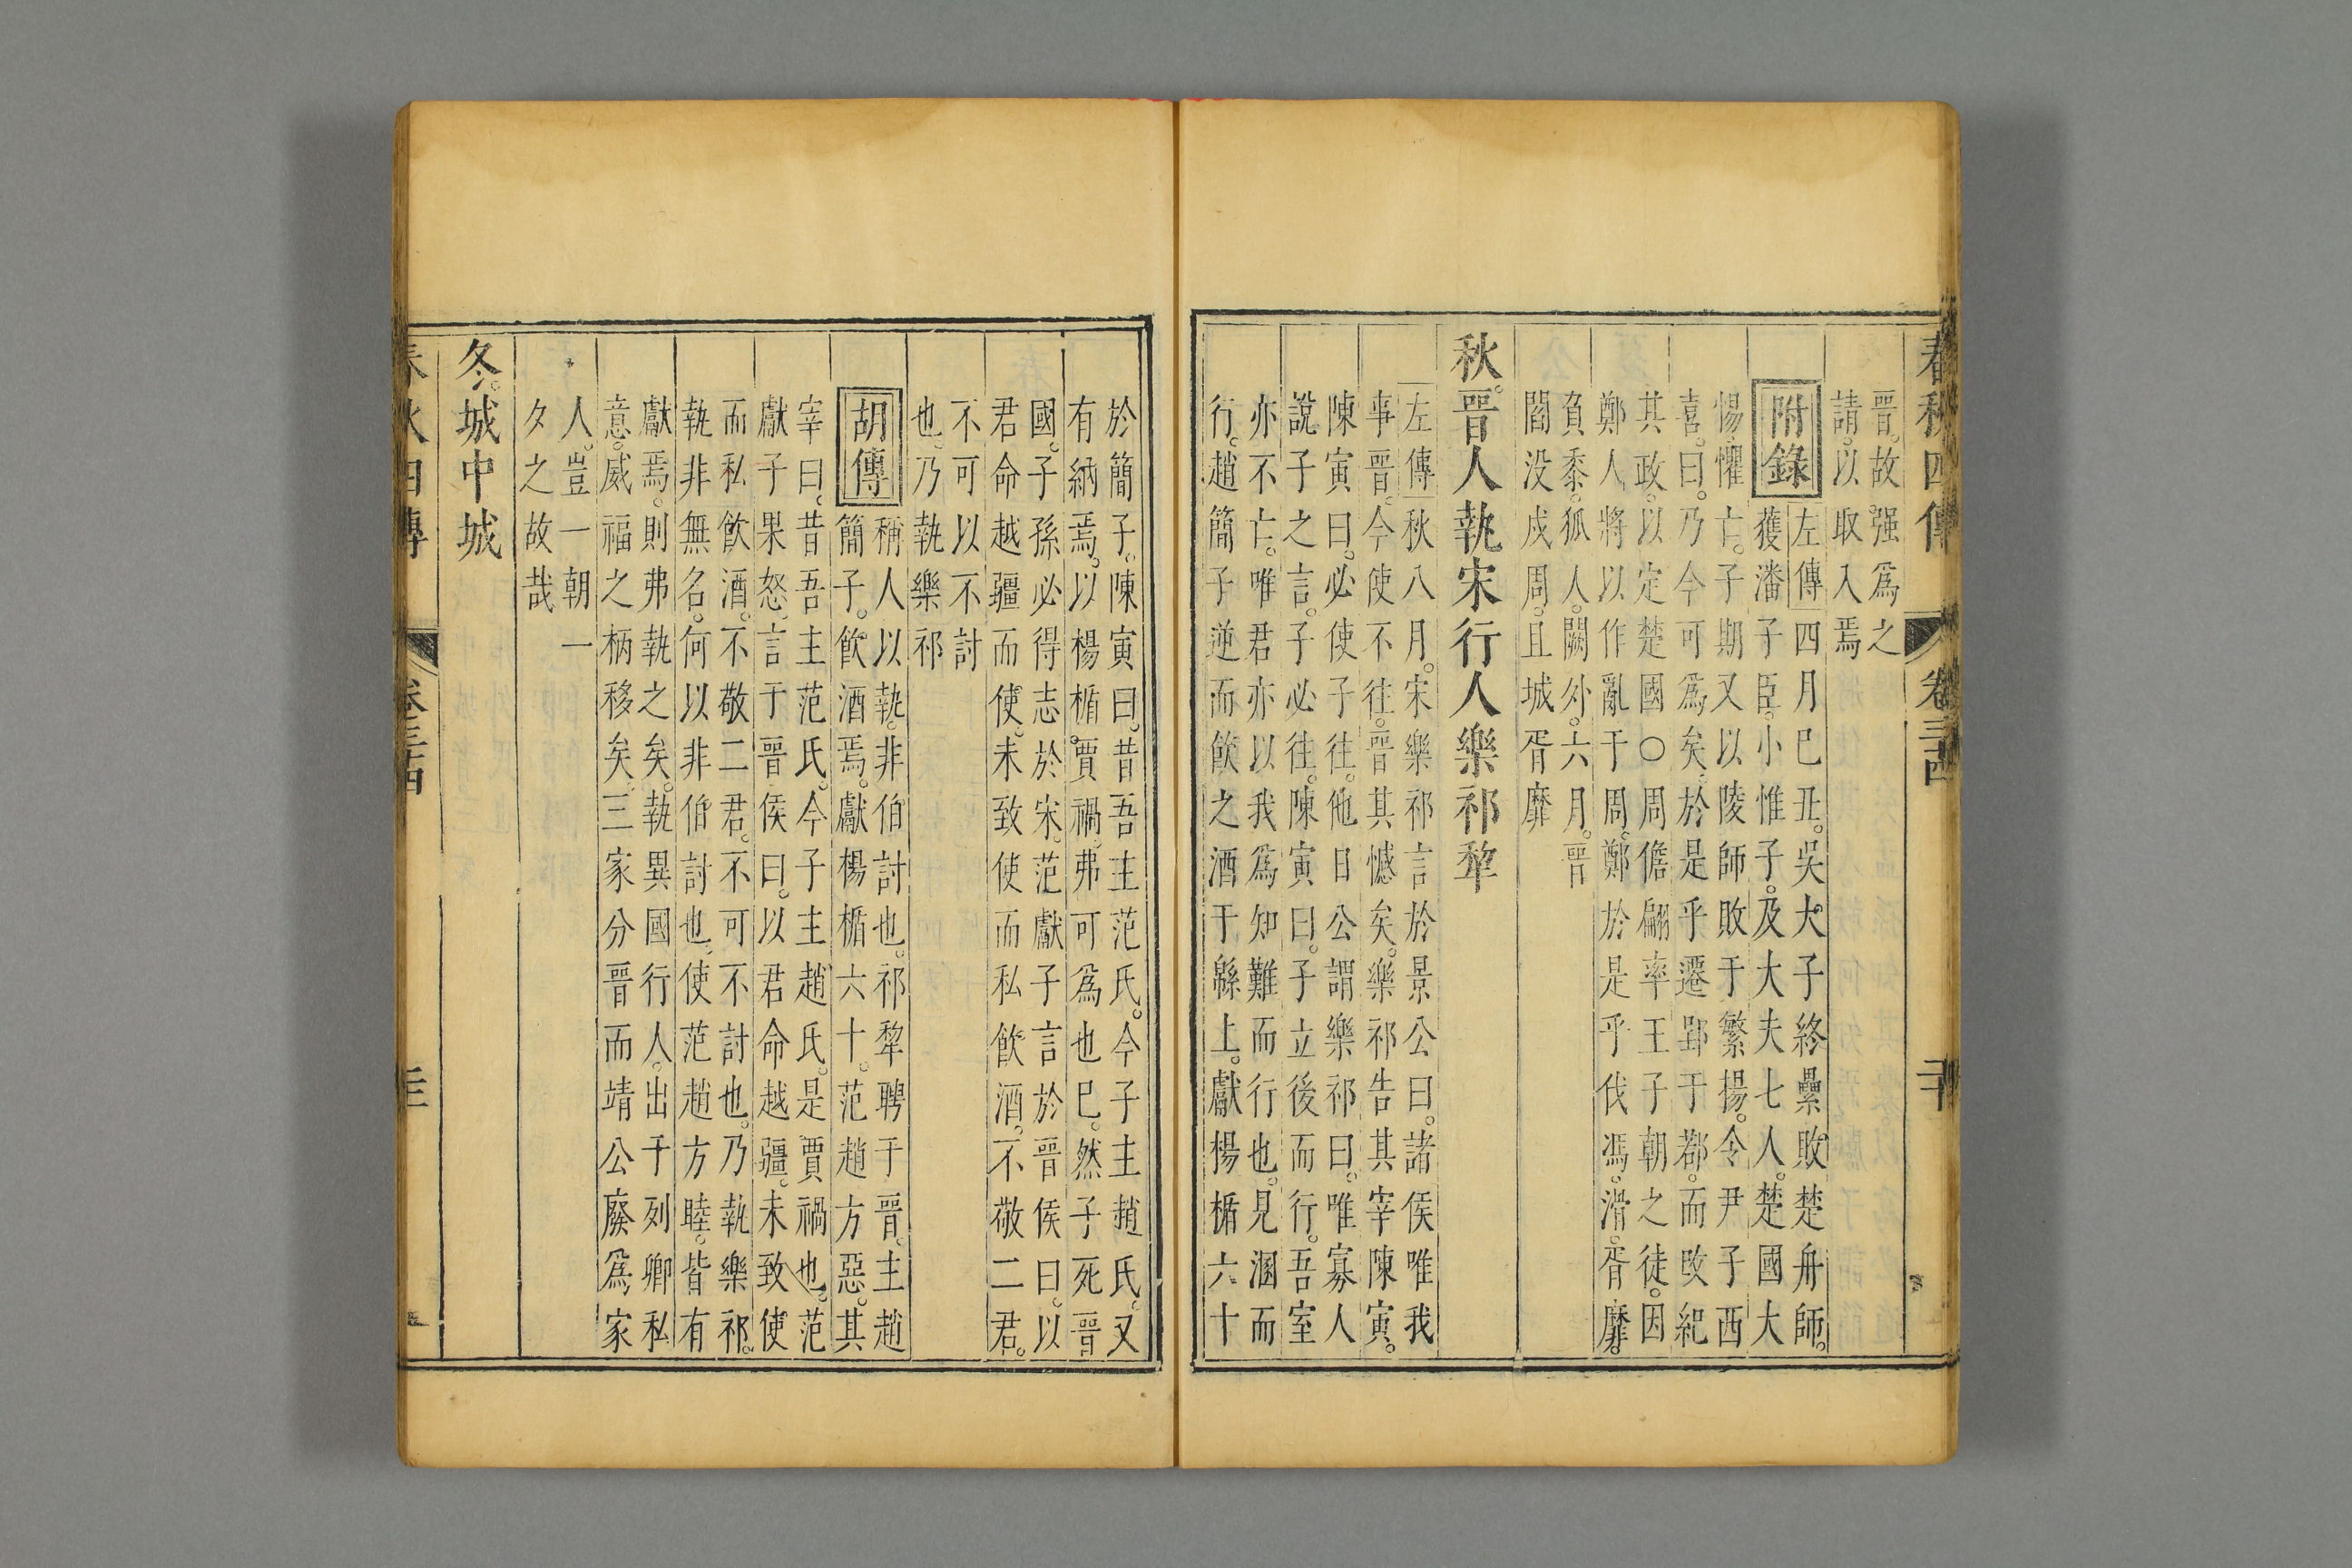 春秋四傳 卷三四 二十
晋。故强爲之
請。以取入焉
附錄
左傳四月巳丑。吳大子終纍敗楚舟師。
獲潘子臣。小惟子。及大夫七人。楚國大
惕。懼亡。子期又以陵師敗于繁揚。令尹子西
喜。曰。乃今可爲矣。於是乎遷郢于鄀。而改紀
其政。以定楚國○周儋翩率王子朝之徒。因
鄭人將以作亂于周。鄭於是乎伐馮。滑。胥靡。
負黍。狐人。闕外。六月。晋
閻没戍周。且城胥靡
秋。晋人執宋行人樂祁犂
左傳秋八月。宋樂祁言於景公曰。諸侯唯我
事晋。今使不往。晋其憾矣。樂祁告其宰陳寅。
陳寅曰。必使子往。他日公謂樂祁曰。唯寡人
說子之言。子必往。陳寅曰。子立後而行。吾室
亦不亡。唯君亦以我爲知難而行也。見溷而
行。趙簡子逆而飮之酒于緜上。獻楊楯六十
於簡子。陳寅曰。昔吾主范氏。今子主趙氏。又
有納焉。以楊楯。賈禍。弗可爲也巳。然子死晋
國。子孫必得志於宋。范獻子言於晋侯曰。以
君命越疆而使。未致使而私飮酒。不敬二君。
不可以不討
也。乃執樂祁
胡傳
稱人以執。非伯討也。祁犂聘于晋。主趙
簡子。飮酒焉。獻楊楯六十。范趙方惡。其
宰曰。昔吾主范氏。今子主趙氏。是賈禍也。范
獻子果怒。言于晋侯曰。以君命越疆。未致使
而私飮酒。不敬二君。不可不討也。乃執樂祁。
執非無名。何以非伯討也。使范趙方睦。皆有
獻焉。則弗執之矣。執異國行人。出于列卿私
意。威福之柄移矣。三家分晋而靖公廢爲家
人。豈一朝一
夕之故哉
冬。城中城
春秋四傳 卷三四